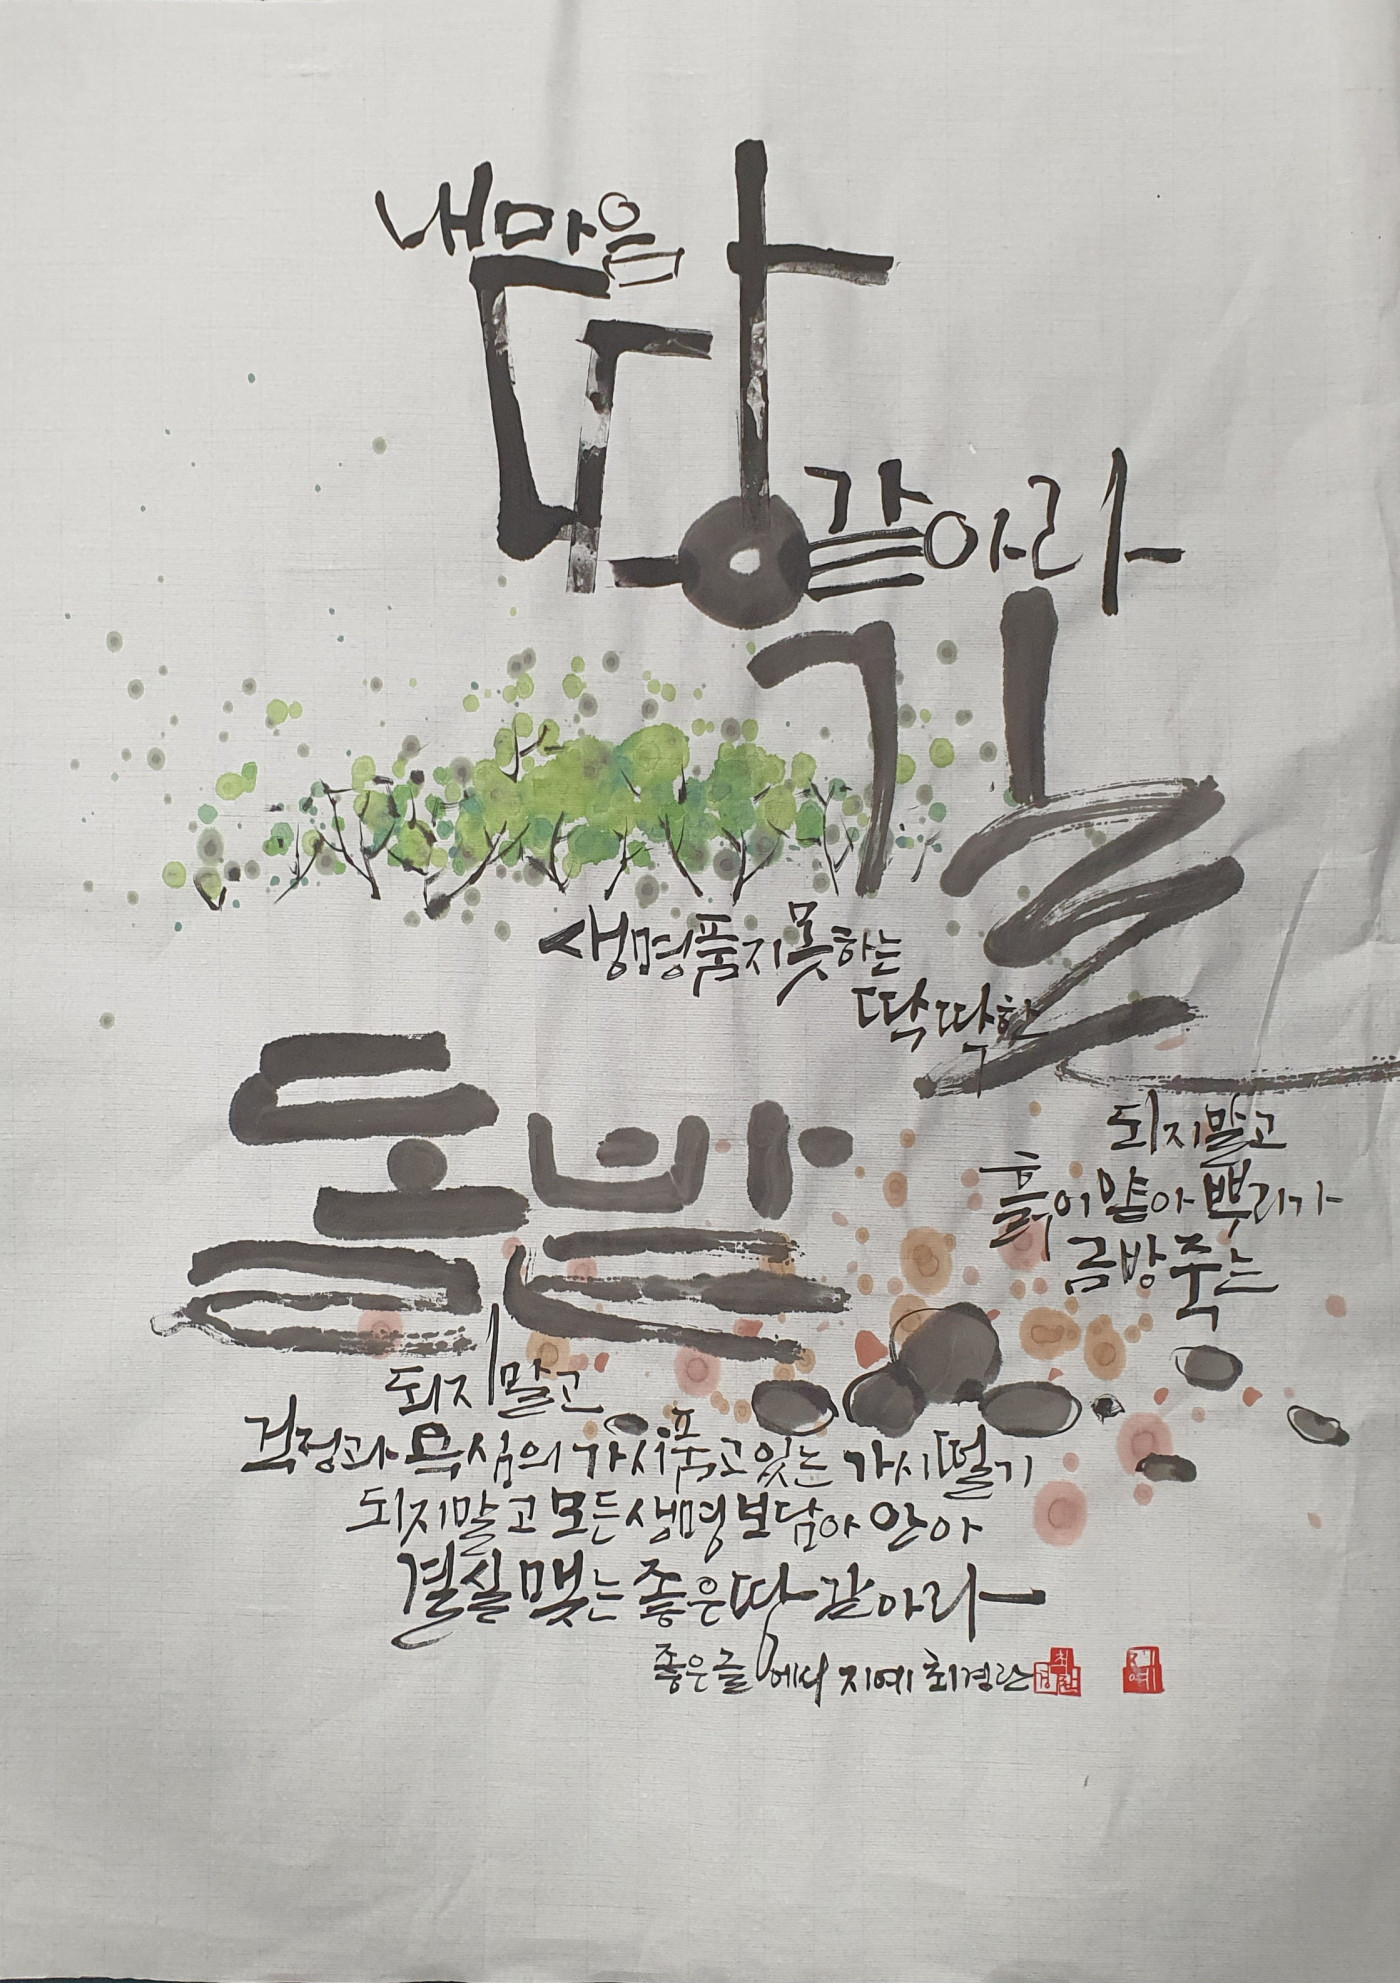 내마음
땅
같아라
생명품지못하는
딱딱한
길
되지말고
흙이얕아뿌리가
금방죽는
돌밭
되지말고
걱정과 욕심의 가시품고있는 가시떨기
되지말고모든생명보담아안아
결실맺는좋은땅같아라
좋은글에서 지예 최경란
최경란
지예